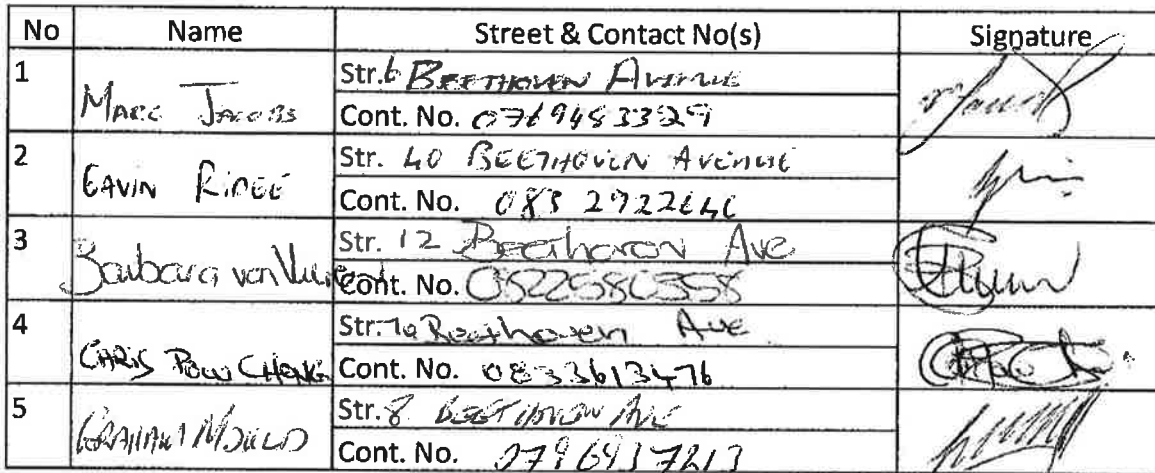 No Name Street & Contact No(s) Signature
1 Marc Jacobs Str. 6 BEETHOVEN AVENUE
Cont. No. 0769483329
2 GAVIN RIDGE Str. 40 BEETHOVEN AVENUE
Cont. No. 083 2922646
3 Barbara van Str. 12 Beethoven Ave
Cont. No. 0822586358
4 CHRIS POW CHONG Str. Beethoven Ave
Cont. No. 0833613476
5 GRAHAM MOULD Str. 8 BEETHOVEN AVE
Cont. No. 0796937213